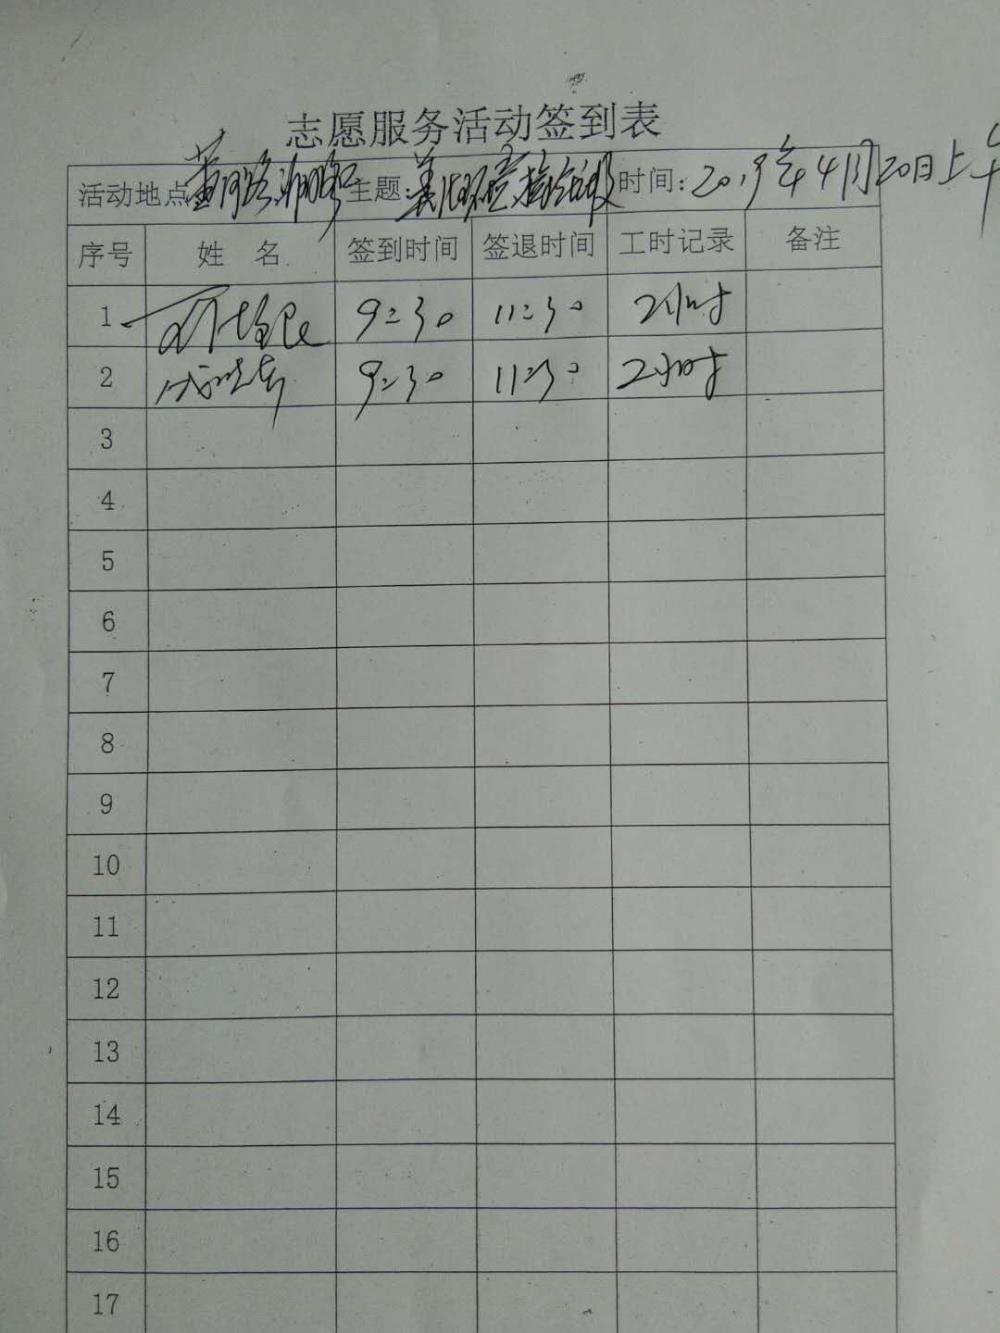 志愿服务活动签到表
活动地点 黄河路 主题: 美化环境 捡垃圾 时间: 2019年4月20日上午
序号 姓 名 签到时间 签退时间 工时记录 备注
1 9:30 11:30 2小时
2 9:30 11:30 2小时
3
4
5
6
7
8
9
10
11
12
13
14
15
16
17